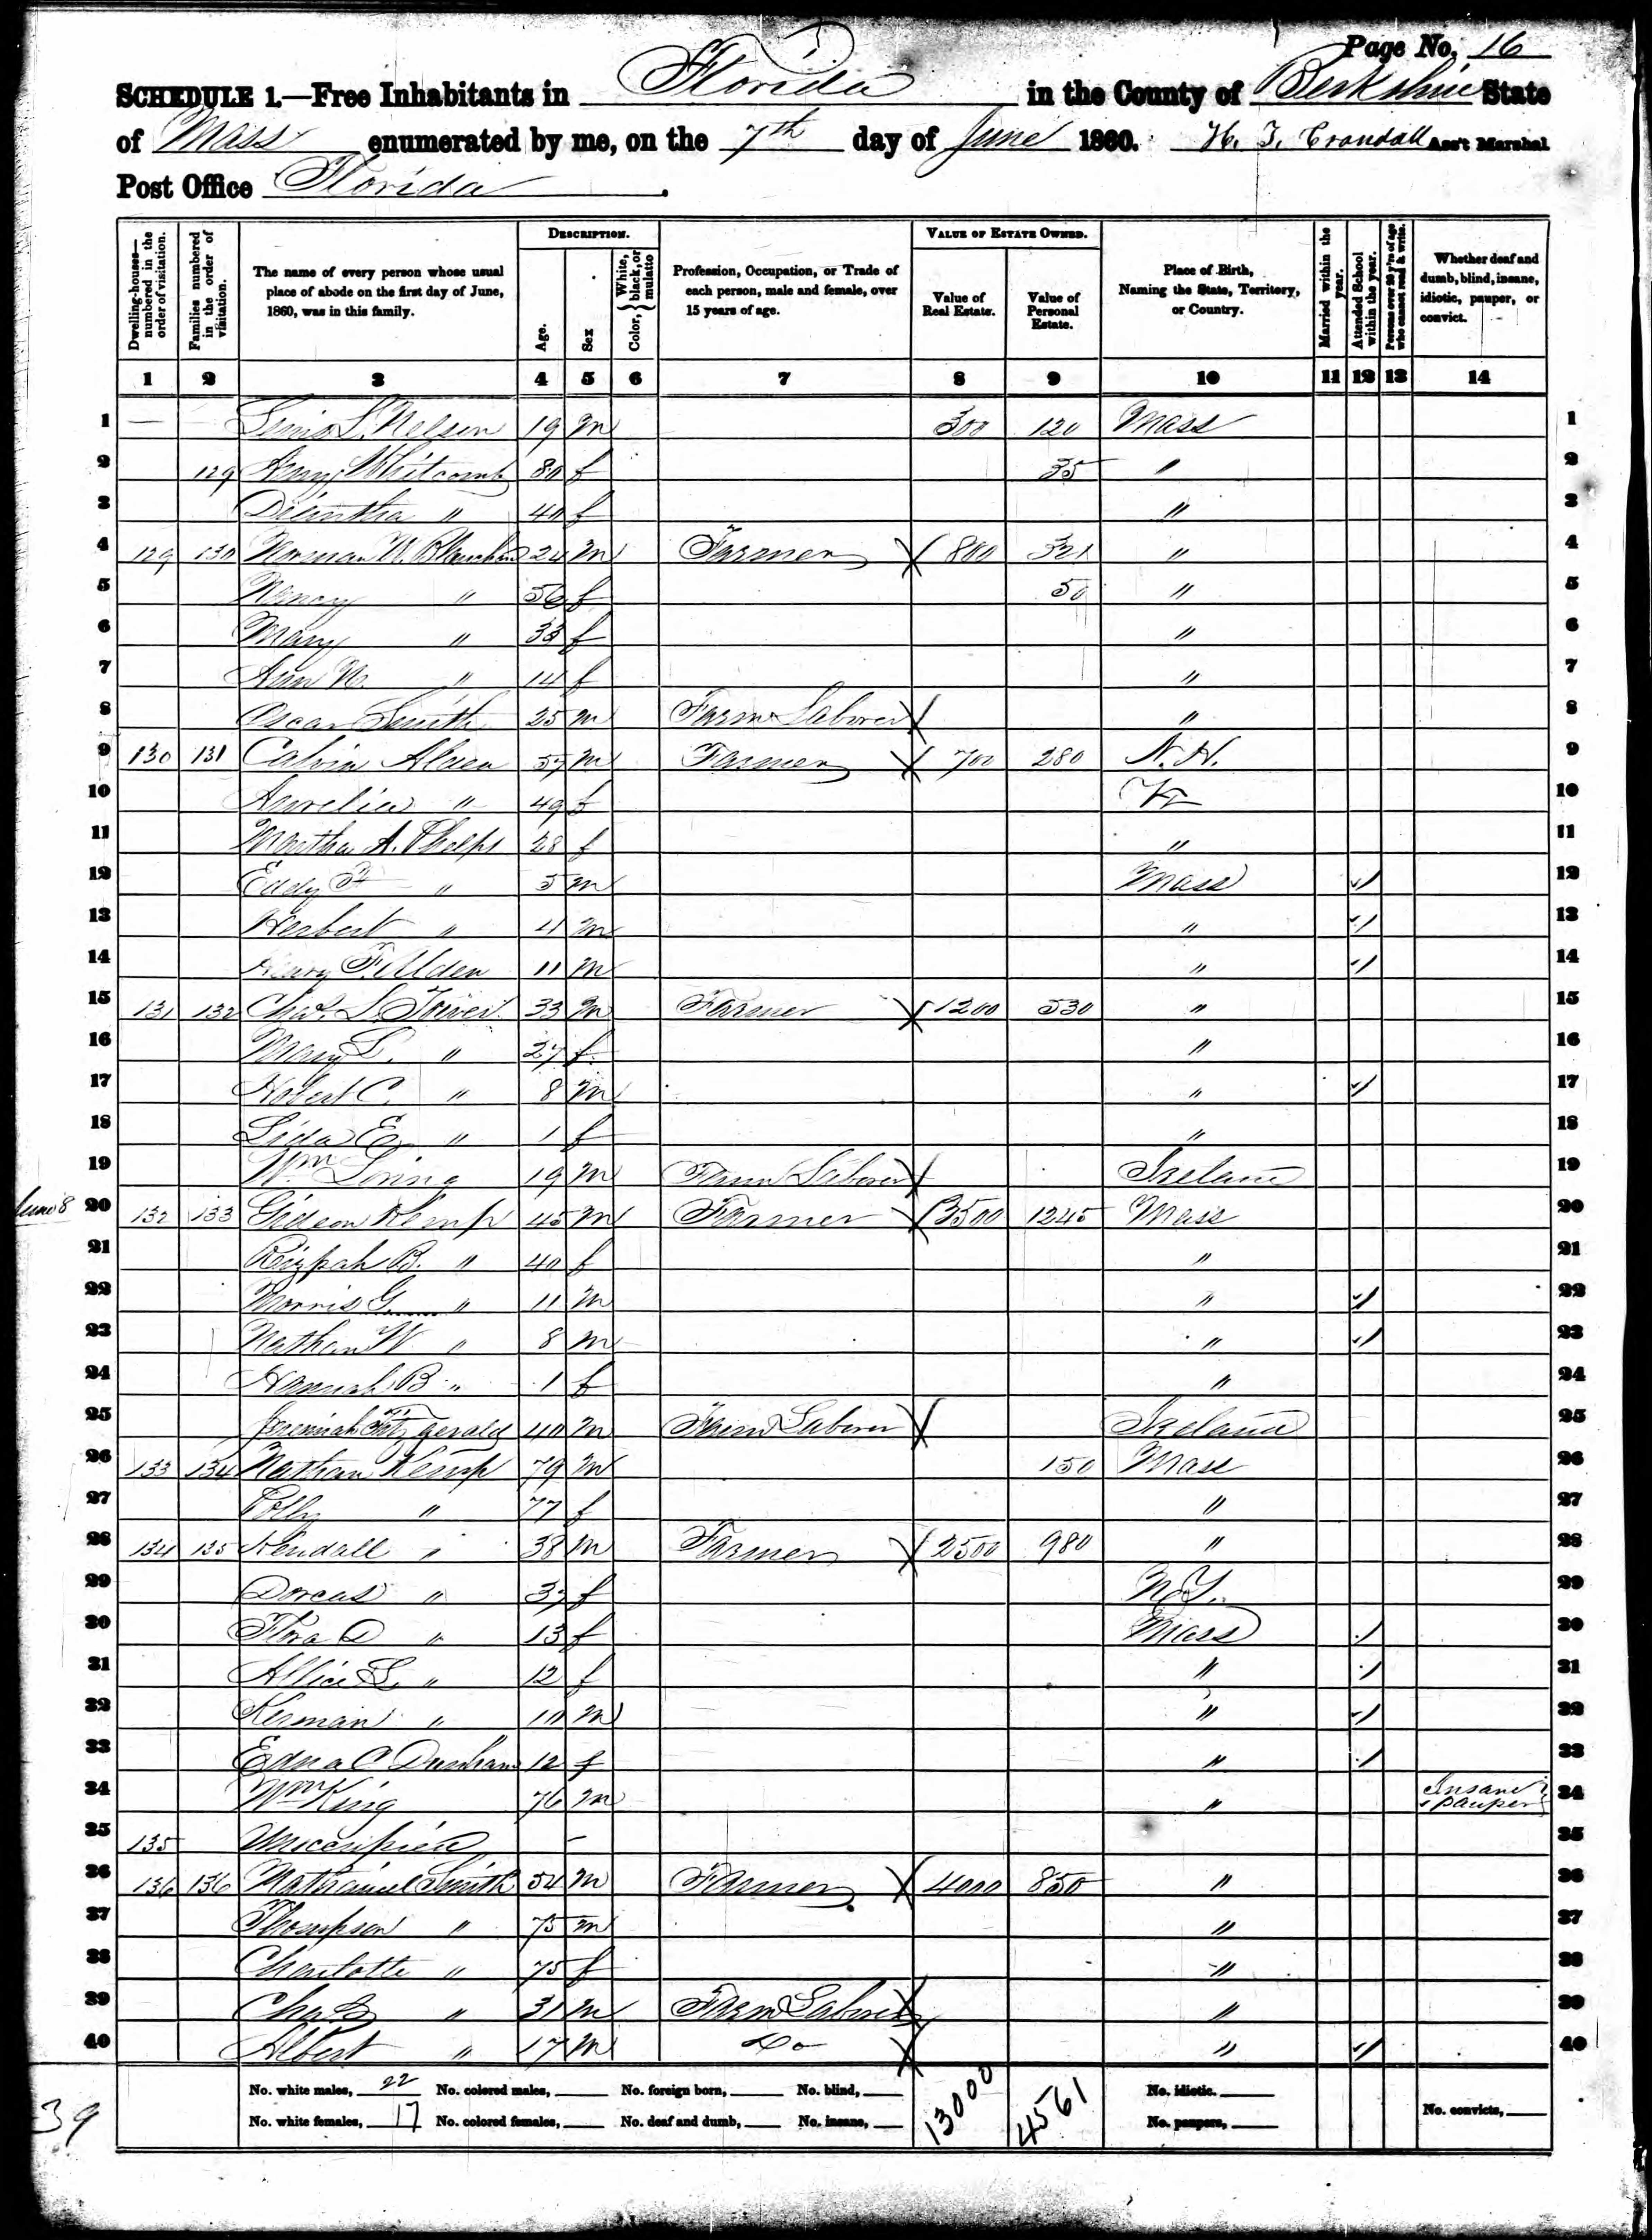 Page No. 16
SCHEDULE 1.—Free Inhabitants in Florida in the County of Berkshire State
of Mass enumerated by me, on the 7th day of June 1860. H. T. Crandall Ass't Marshal
Post Office Florida.
Dwelling-houses—numbered in the order of visitation.
Families numbered in the order of visitation.
The name of every person whose usual place of abode on the first day of June, 1860, was in this family.
DESCRIPTION.
Age.
Sex
Color, { White, black, or mulatto
Profession, Occupation, or Trade of each person, male and female, over 15 years of age.
VALUE OF ESTATE OWNED.
Value of Real Estate.
Value of Personal Estate.
Place of Birth, Naming the State, Territory, or Country.
Married within the year.
Attended School within the year.
Persons over 20 y'rs of age who cannot read & write.
Whether deaf and dumb, blind, insane, idiotic, pauper, or convict.
1 2 3 4 5 6 7 8 9 10 11 12 13 14
1 — S. Nelson 19 m 300 120 Mass 1
2 129 Whitcomb 80 f 35 " 2
3 " 40 f " 3
4 129 130 Norman W. 24 m Farmer X 800 321 " 4
5 Nancy " 56 f 50 " 5
6 Mary " 33 f " 6
7 Ann N. " 14 f " 7
8 Oscar Smith 25 m Farm Laborer X " 8
9 130 131 Calvin Alden 57 m Farmer X 700 280 N. H. 9
10 Aurelia " 49 f Vt 10
11 Martha A. Phelps 28 f " 11
12 Eddy F " 5 m Mass / 12
13 Herbert " 4 m " / 13
14 Henry F. Alden 11 m " / 14
15 131 132 Chas. S. Tower 33 m Farmer X 1200 530 " 15
16 Mary L. " 27 f " 16
17 Robert C. " 8 m " / 17
18 Lida E. " 1 f " 18
19 Wm Loring 19 m Farm Laborer X Ireland 19
June 8 20 132 133 Gideon Kemp 45 m Farmer X 3500 1245 Mass 20
21 Rizpah B. " 40 f " 21
22 Morris G. " 11 m " / 22
23 Nathan W. " 8 m " / 23
24 Hannah B " 1 f " 24
25 Jeremiah Fitzgerald 40 m Farm Laborer X Ireland 25
26 133 134 Nathan Kemp 79 m 150 Mass 26
27 Polly " 77 f " 27
28 134 135 Kendall " 38 m Farmer X 2500 980 " 28
29 Dorcas " 37 f N.Y. 29
30 Flora D " 13 f Mass / 30
31 Allice L. " 12 f " / 31
32 " 10 m " / 32
33 Edna C Dunham 12 f " / 33
34 Wm King 76 m " Insane & pauper 34
35 135 Unoccupied — 35
36 136 136 Nathaniel Smith 54 m Farmer X 4000 850 " 36
37 Thompson " 75 m " 37
38 Charlotte " 75 f " 38
39 Chas B " 31 m Farm Laborer X " 39
40 Albert " 17 m Do X " / 40
No. white males, 22 No. colored males, No. foreign born, No. blind, 13000 4561 No. idiotic.
39 No. white females, 17 No. colored females, No. deaf and dumb, No. insane, No. paupers, No. convicts,